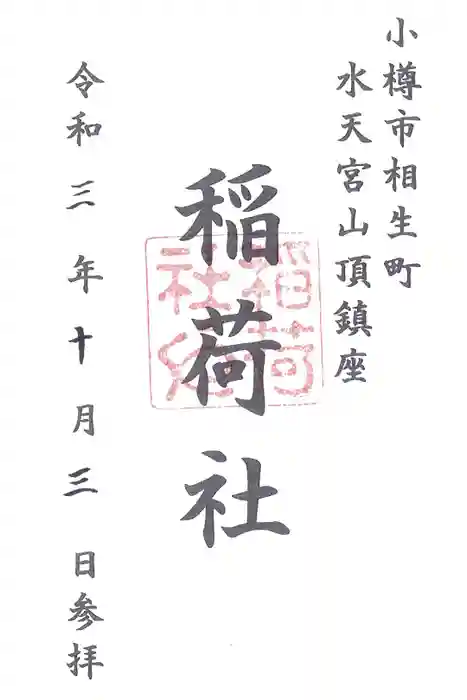 小樽市相生町
水天宮山頂鎮座
稲荷社
稲荷
社
令和三年十月三日参拝